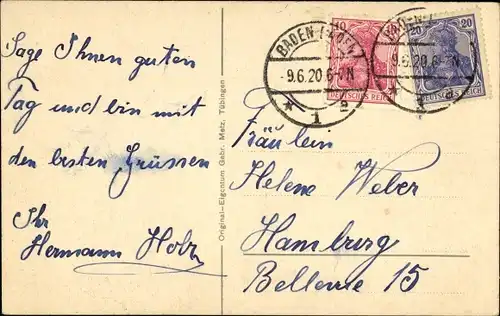 Sage Ihnen guten
Tag und bin mit
den besten Grüssen
Ihr
Hermann Holz
Original-Eigentum Gebr. Metz, Tübingen
BADEN-BADEN
-9.6.20.6-7N
* 1 a
10
DEUTSCHES REICH
BADEN-BADEN
9.6.20.6-7N
20
DEUTSCHES REICH
Fräulein
Helene Weber
Hamburg
Bellevue 15